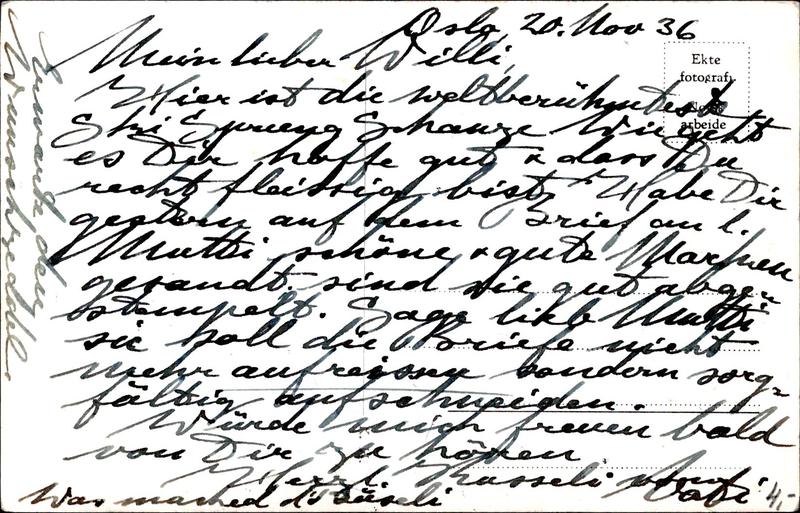 Oslo, 20. Nov 36
Mein lieber Willi,
Hier ist die weltberühmteste
Ski Sprung Schanze Wie geht
es Dir hoffe gut & dass Du
recht fleissig bist. Habe Dir
gestern auf dem Brief an l.
Mutti schöne & gute Marken
gesandt. sind sie gut abge-
stempelt. Sage lieb Mutti
sie soll die Briefe nicht
mehr aufreissen sondern sorg-
fältig aufschneiden.
Würde mich freuen bald
von Dir zu hören
Herzl. Kusseli vom Vati
Was mached d'Büseli
Erwarte dein
Wunschzeddel.
Ekte
fotografi
Norsk
arbeide
4.-